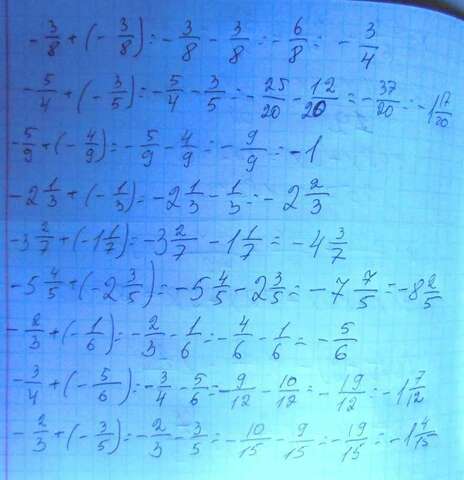 -3/8 + (-3/8) = -3/8 - 3/8 = -6/8 = -3/4
-5/4 + (-3/5) = -5/4 - 3/5 = -25/20 - 12/20 = -37/20 = -1 17/20
-5/9 + (-4/9) = -5/9 - 4/9 = -9/9 = -1
-2 1/3 + (-1/3) = -2 1/3 - 1/3 = -2 2/3
-3 2/7 + (-1 1/7) = -3 2/7 - 1 1/7 = -4 3/7
-5 4/5 + (-2 3/5) = -5 4/5 - 2 3/5 = -7 7/5 = -8 2/5
-2/3 + (-1/6) = -2/3 - 1/6 = -4/6 - 1/6 = -5/6
-3/4 + (-5/6) = -3/4 - 5/6 = -9/12 - 10/12 = -19/12 = -1 7/12
-2/3 + (-3/5) = -2/3 - 3/5 = -10/15 - 9/15 = -19/15 = -1 4/15